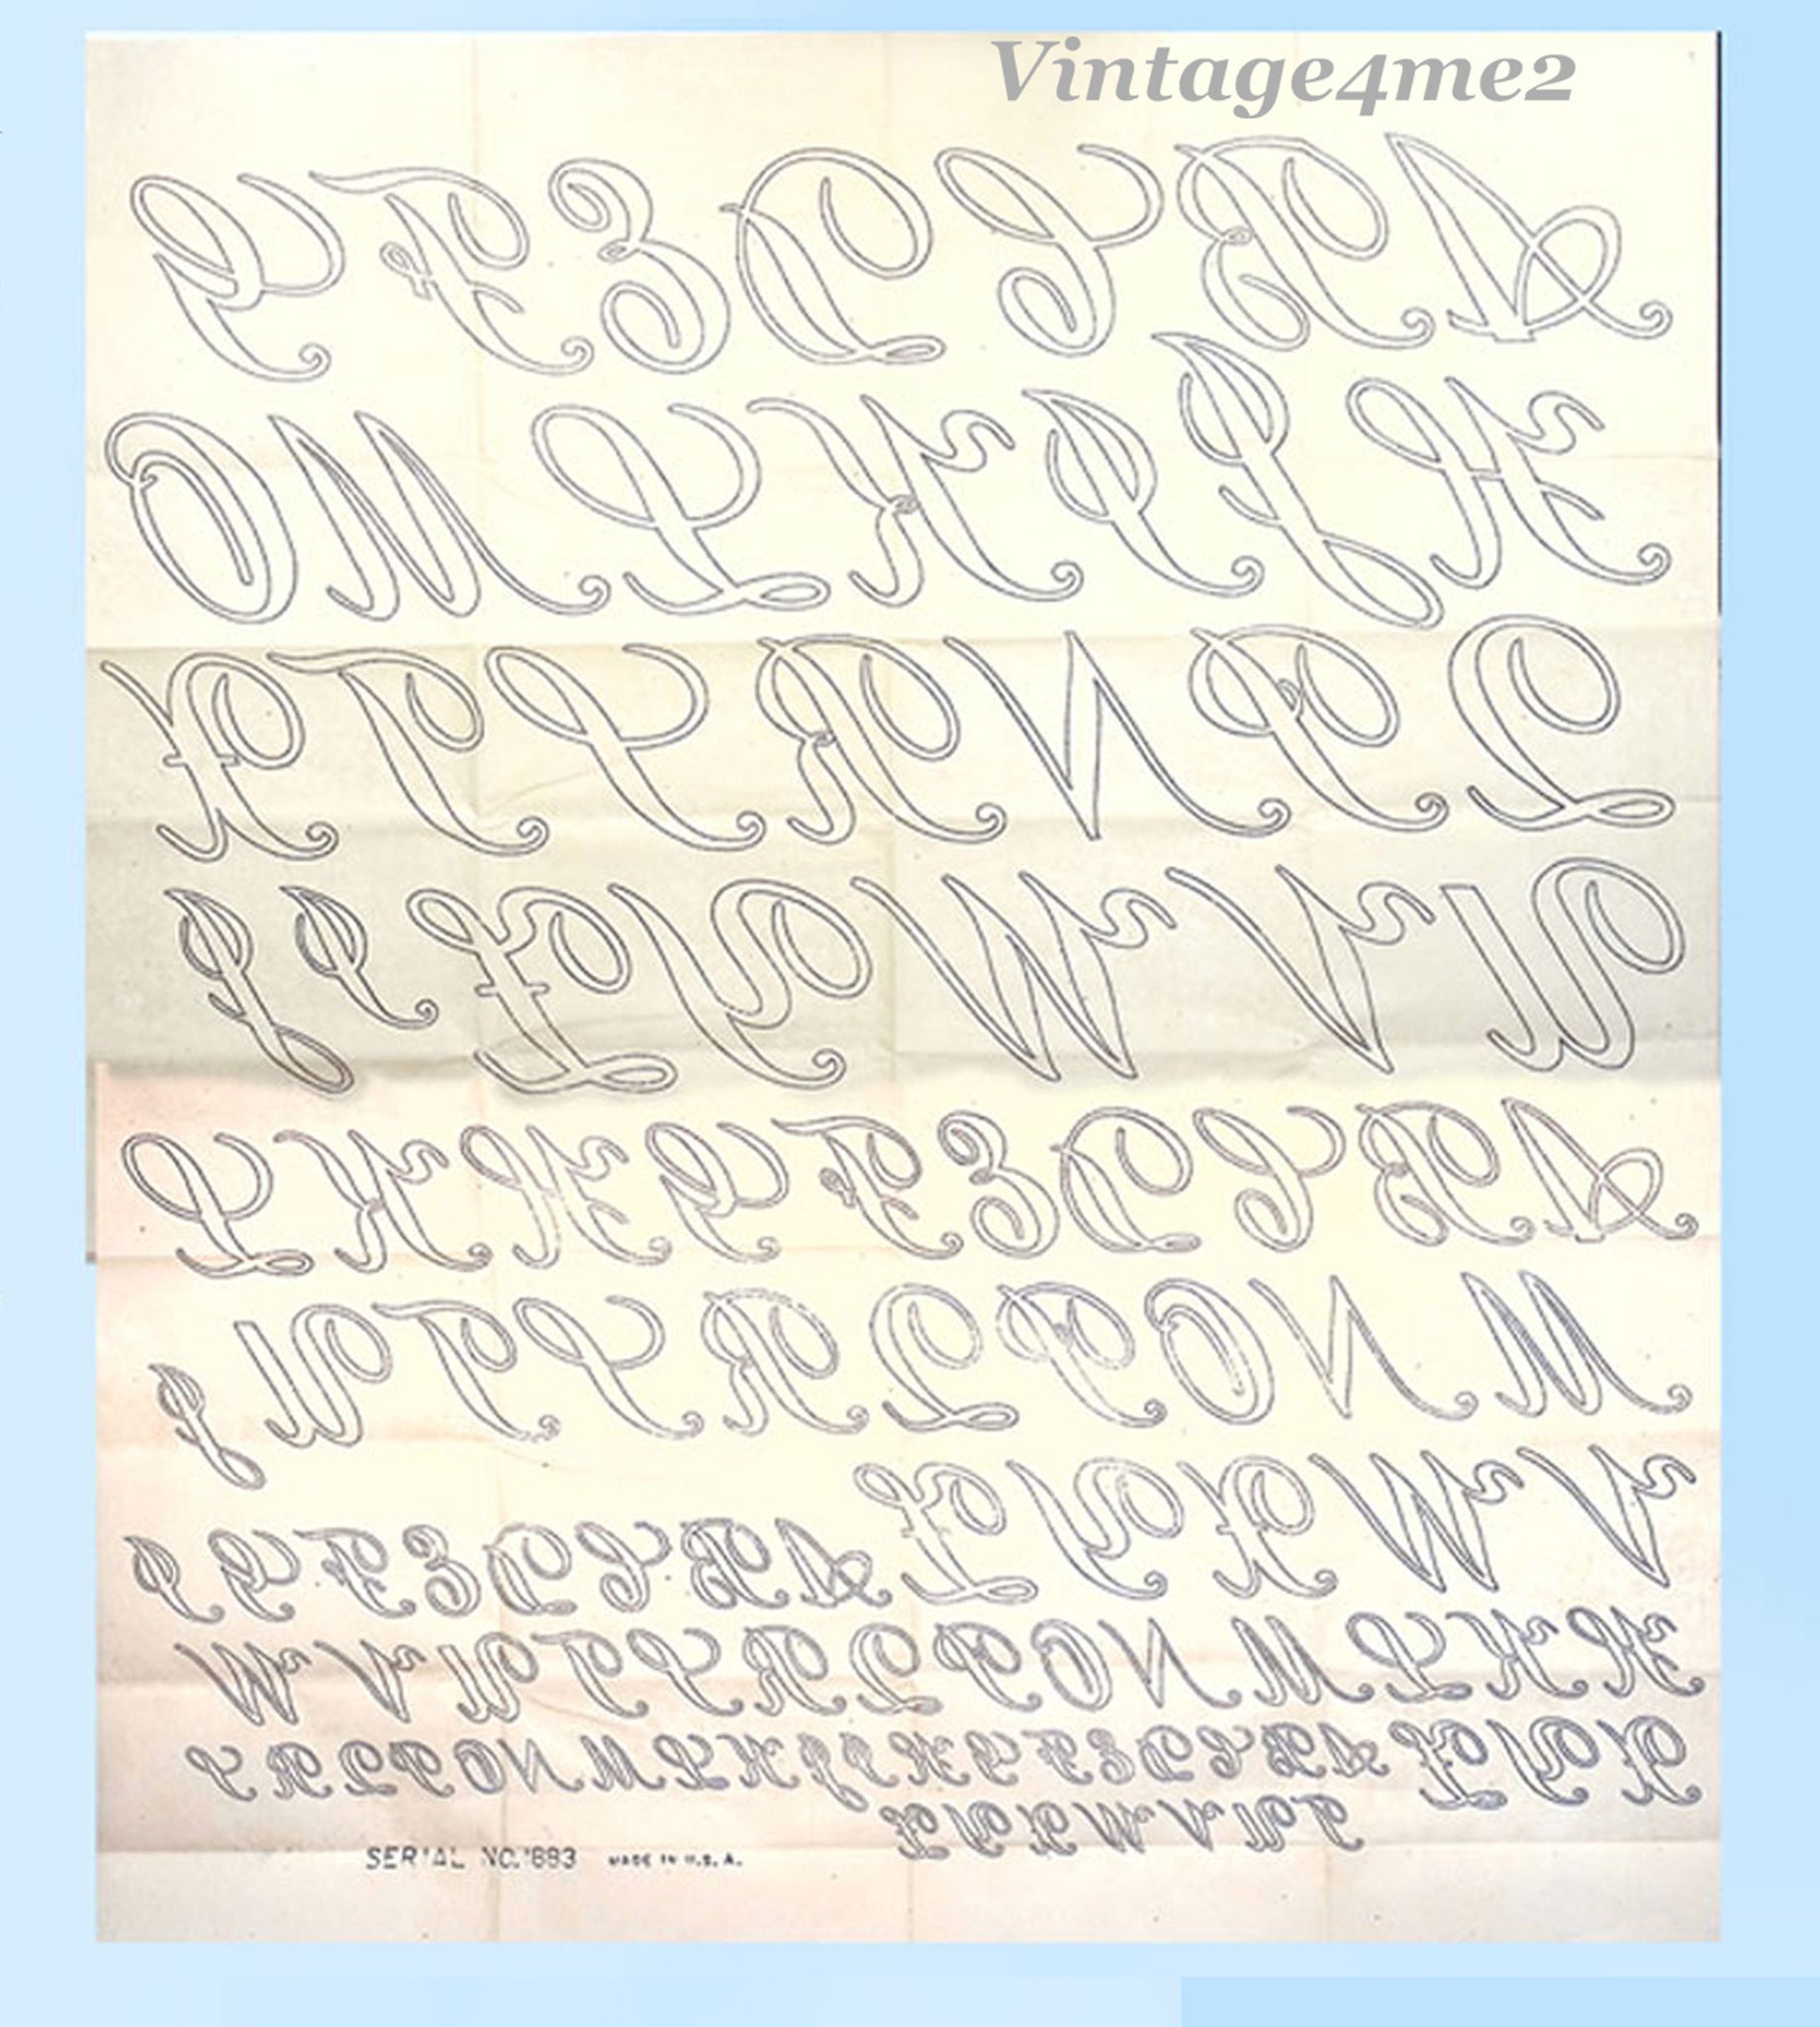 Vintage4me2
A B C D E F G
H J I K L M O
Q P N R S T X
U V W Y Z I J
A B C D E F G H K L
M N O P Q R S T U J
V W X Y Z
A B C D E F G I
H K L M N O P Q R S T U V W
X Y Z
A B C D E F G H I J K L M N O P Q R S
T U V W X Y Z
SERIAL NO. 1883 MADE IN U.S.A.